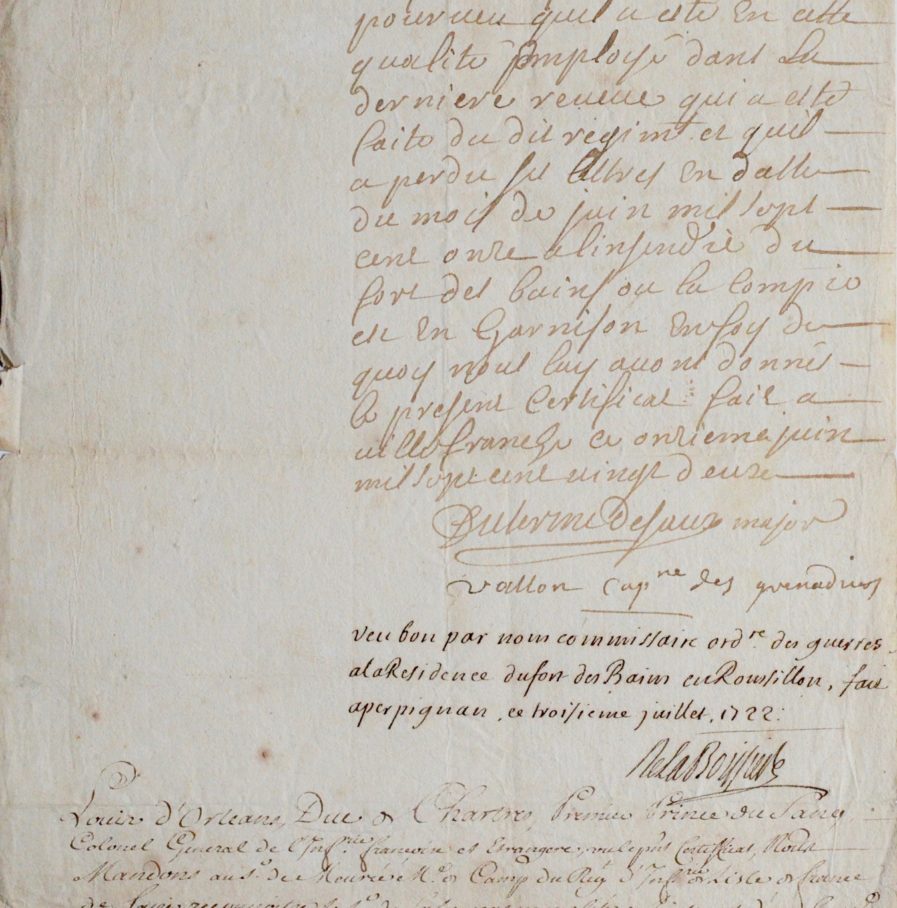 pourveu quil a esté En cette
qualité Employé dans La
derniere reveue qui a esté
faite du dit regimt et quil
a perdu ses lettres En datte
du mois de juin mil sept
cent onze a linsendie du
fort des bains ou la Compie
est En Garnison En foy de
quoy nous luy avons donnés
le present Certificat fait a
villefranche ce onzieme juin
mil sept cent vingt deux
major
vallon capne des grenadiers
veu bon par nous commissaire ordre des guerres
a la Residence du fort des Bains en Roussillon, fait
a perpignan, ce troisieme juillet, 1722.
De la Boissiere
Louis d'Orleans, Duc de Chartres, Premier Prince du Sang
Colonel General de l'Infrie françoise et Etrangere, vu le pnt Certificat, Nous
Mandons au Sr. de Mre de Camp du Regt d'Infrie de Lisle de france